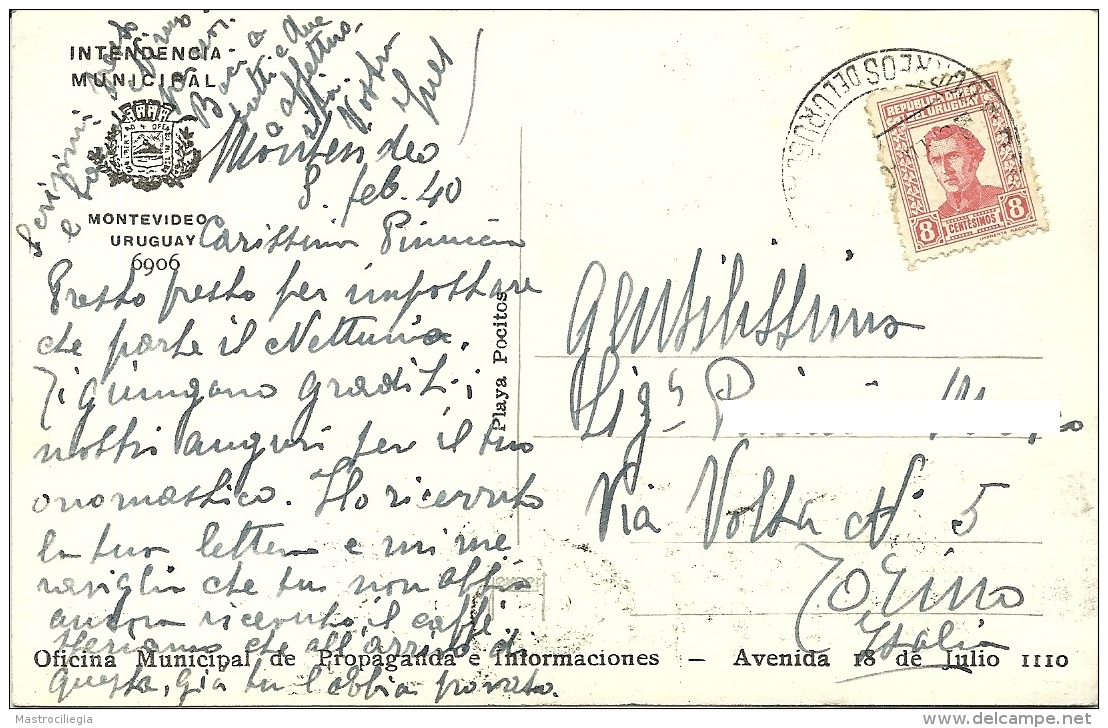 INTENDENCIA
MUNICIPAL
MONTEVIDEO
URUGUAY
6906
Montevideo
8. feb. 40
Carissima
Presto presto per impostare
che parte il Nettunia.
Ti giungano graditi i
nostri auguri per il tuo
onomastico. Ho ricevuto
la tua lettera e mi me
raviglio che tu non abbia
ancora ricevuto il caffè.
Speriamo che all'arrivo di
questa, già tu l'abbia provato.
Scrivimi presto
e
Baci a
tutti e due
affettuo
sissimi
Vostra
Ines
Playa Pocitos
CORREOS DEL URUGUAY
REPUBLICA ORIENTAL
DEL URUGUAY
8 CENTESIMOS 8
IMPRENTA NACIONAL
Gentilissimo
Sig.
Via Volta N. 5
Torino
Italia
Oficina Municipal de Propaganda e Informaciones — Avenida 18 de Julio 1110
Mastrociliegia
www.delcampe.net